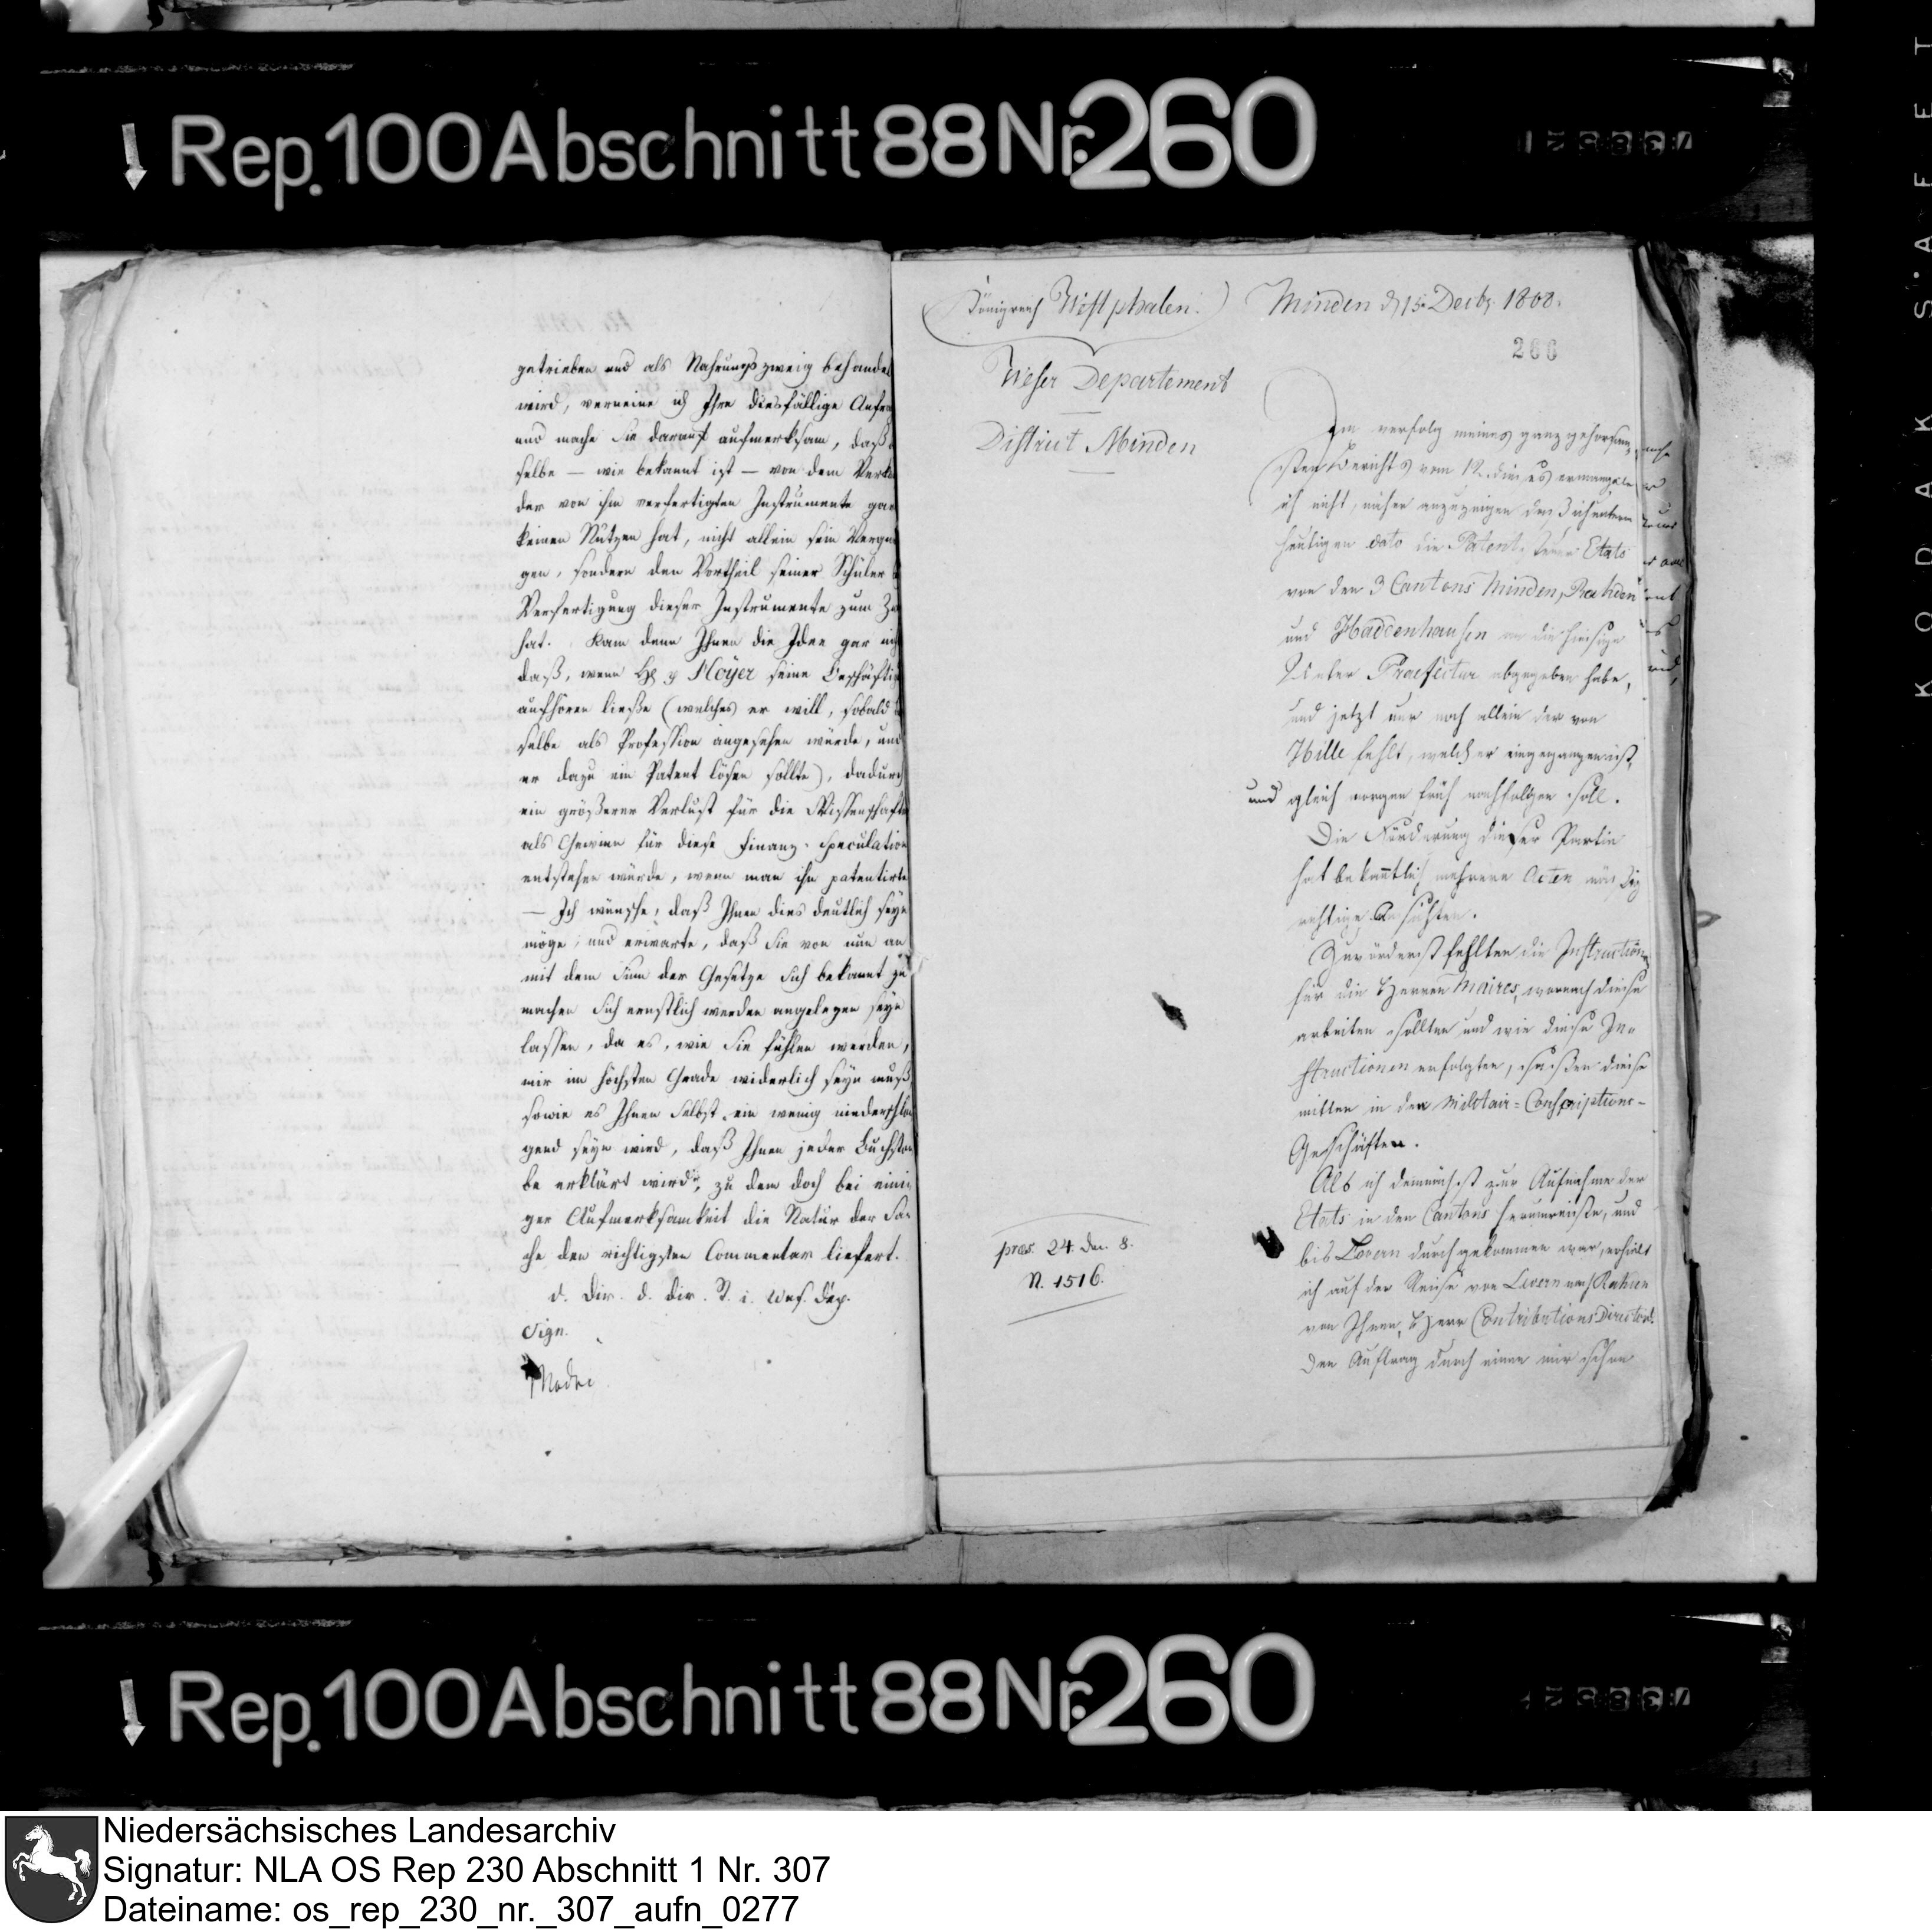 Rep. 100 Abschnitt 88 Nr. 260
getrieben und als Nahrungszweig behandel
wird, verneine ich Ihre diesfällige Anfra
und mache Sie darauf aufmerksam, daß
selbe — wie bekannt ist — von dem Verk
der von ihm verfertigten Instrumente gar
keinen Nutzen hat, nicht allein sein Vergnü
gen, sondern den Vortheil seiner Schüler
Verfertigung dieser Instrumente zum Z
hat. Kam denn Ihnen die Idee gar nic
daß, wenn Hoyer seine Beschäfti
aufhören ließe (welches er will, sobald
selbe als Profession angesehen würde, und
er dazu ein Patent lösen sollte), dadurch
ein größerer Verlust für die Wissenschaft
als Gewinn für diese Finanz-Speculation
entstehen würde, wenn man ihn patentirte
— Ich wünsche, daß Ihnen dies deutlich seyn
möge, und erwarte, daß Sie von nun an
mit dem Sinn der Gesetze Sich bekannt zu
machen Sich ernstlich werden angelegen seyn
lassen, da es, wie Sie fühlen werden,
mir im höchsten Grade widerlich seyn muß
sowie es Ihnen Selbst ein wenig niederschla
gend seyn wird, daß Ihnen jeder Buchsta
be erklärt wird, zu dem doch bei eini
ger Aufmerksamkeit die Natur der Sa-
che den richtigsten Commentar liefert.
d. Dir. d. dir. St. i. Wes. Dep.
Sign.
Königreich Westphalen.
Weser Departement
District Minden
praes. 24. Dec. 8.
N. 1516.
Minden d 15. Decbr. 1808.
266
Im verfolg meines ganz gehorsam-
sten Berichts vom 12. dieses ermangele
ich nicht, näher anzuzeigen daß ich unterm
heutigen dato die Patent-Steuer Etats
von den 3 Cantons Minden, Rahden
und Haddenhausen an die hiesige
Unter Praefectur abgegeben habe,
und jetzt nur noch allein der von
Hille fehlt, welcher eingegangen ist,
und gleich morgen früh nachfolgen soll.
Die Förderung dieser Partie
hat bekanntlich mehrere
Zuvörderst fehlten die Instruction
für die Herren Maires, wornach diese
arbeiten sollten und wie diese In-
structionen erfolgten, saßen diese
mitten in den Militair-Conscriptions-
Geschäften.
Als ich demnächst zur Aufnahme der
Etats in den Cantons herumreiste, und
bis Levern durchgekommen war, erhielt
ich auf der Reise von Levern nach Rahden
von Ihnen, Herr Contributions Director
den Auftrag durch einen mir
Rep. 100 Abschnitt 88 Nr. 260
KODAK SAFET
Niedersächsisches Landesarchiv
Signatur: NLA OS Rep 230 Abschnitt 1 Nr. 307
Dateiname: os_rep_230_nr._307_aufn_0277